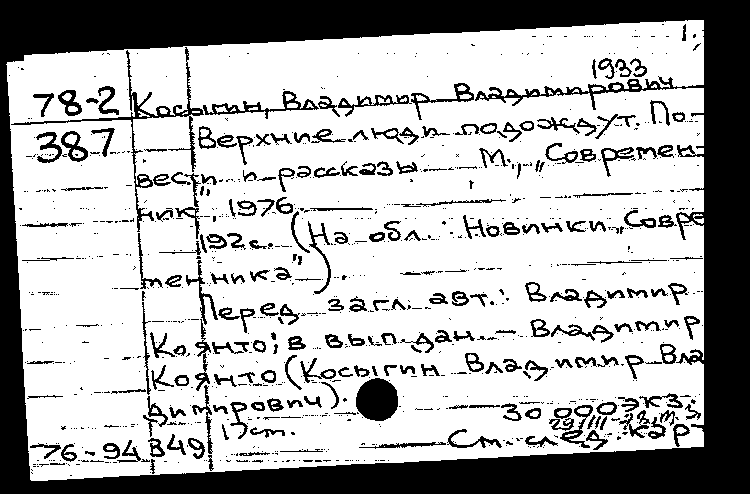 1.
1933
78-2 Косыгин, Владимир Владимирович
387 Верхние люди подождут. По-
вести и рассказы М., „Современ-
ник", 1976.
192с. (На обл.: Новинки „Совре
менника").
Перед загл. авт.: Владимир
Коянто; в вып. дан. – Владимир
Коянто (Косыгин Владимир Вла
димирович).
30 000 экз.
17 см.
76-94349 См. след. кар